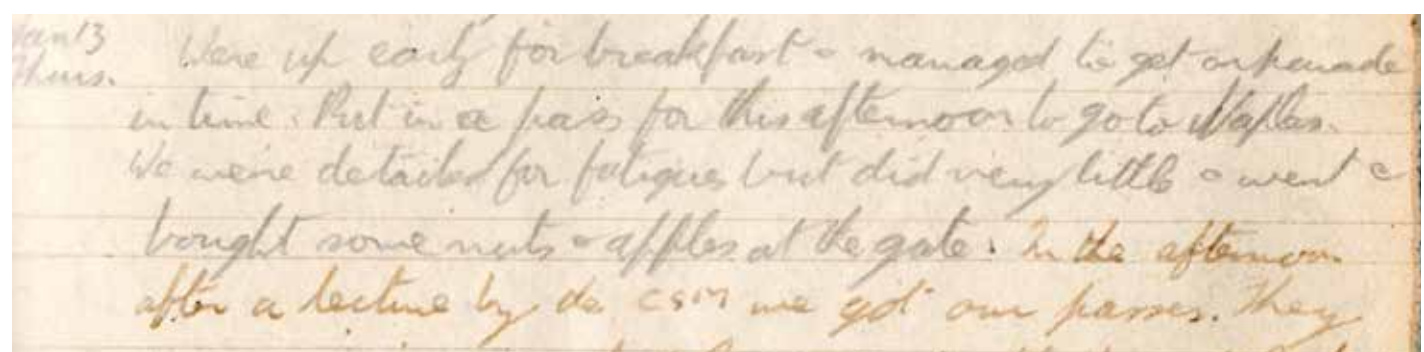 Jan 13 Were up early for breakfast & managed to get on parade
Thurs. in time. Put in a pass for this afternoon to go to Naples.
We were detailed for fatigues but did very little & went &
bought some nuts & apples at the gate. In the afternoon
after a lecture by the CSM we got our passes. They